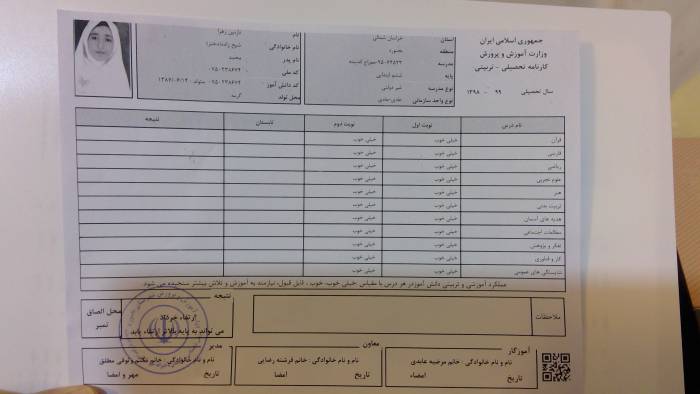 جمهوری اسلامی ایران
وزارت آموزش و پرورش
کارنامه تحصیلی - تربیتی
سال تحصیلی ۹۹ ۱۳۹۸
استان خراسان شمالی
منطقه بجنورد
مدرسه
پایه ششم ابتدایی
نوع مدرسه غیر دولتی
نوع واحد سازمانی عادی-عادی
نام نازنین زهرا
نام خانوادگی
نام پدر محمد
کد ملی
کد دانش آموز
محل تولد
نام درس نوبت اول نوبت دوم تابستان نتیجه
قرآن خیلی خوب خیلی خوب
فارسی خیلی خوب خیلی خوب
ریاضی خیلی خوب خیلی خوب
علوم تجربی خیلی خوب خیلی خوب
هنر خیلی خوب خیلی خوب
تربیت بدنی خیلی خوب خیلی خوب
هدیه های آسمان خیلی خوب خیلی خوب
مطالعات اجتماعی خیلی خوب خیلی خوب
تفکر و پژوهش خیلی خوب خیلی خوب
کار و فناوری خیلی خوب خیلی خوب
شایستگی های عمومی خیلی خوب خیلی خوب
عملکرد آموزشی و تربیتی دانش آموز در هر درس با مقیاس خیلی خوب، خوب ، قابل قبول، نیازمند به آموزش و تلاش بیشتر سنجیده می شود
ملاحظات
نتیجه
ارتقاء خرداد
می تواند به پایه بالاتر ارتقاء یابد
محل الصاق
تمبر
آموزگار
نام و نام خانوادگی : خانم مرضیه عابدی
تاریخ امضاء
معاون
نام و نام خانوادگی : خانم فرشته رضایی
تاریخ امضا
مدیر
نام و نام خانوادگی : خانم مطلق
تاریخ مهر و امضا